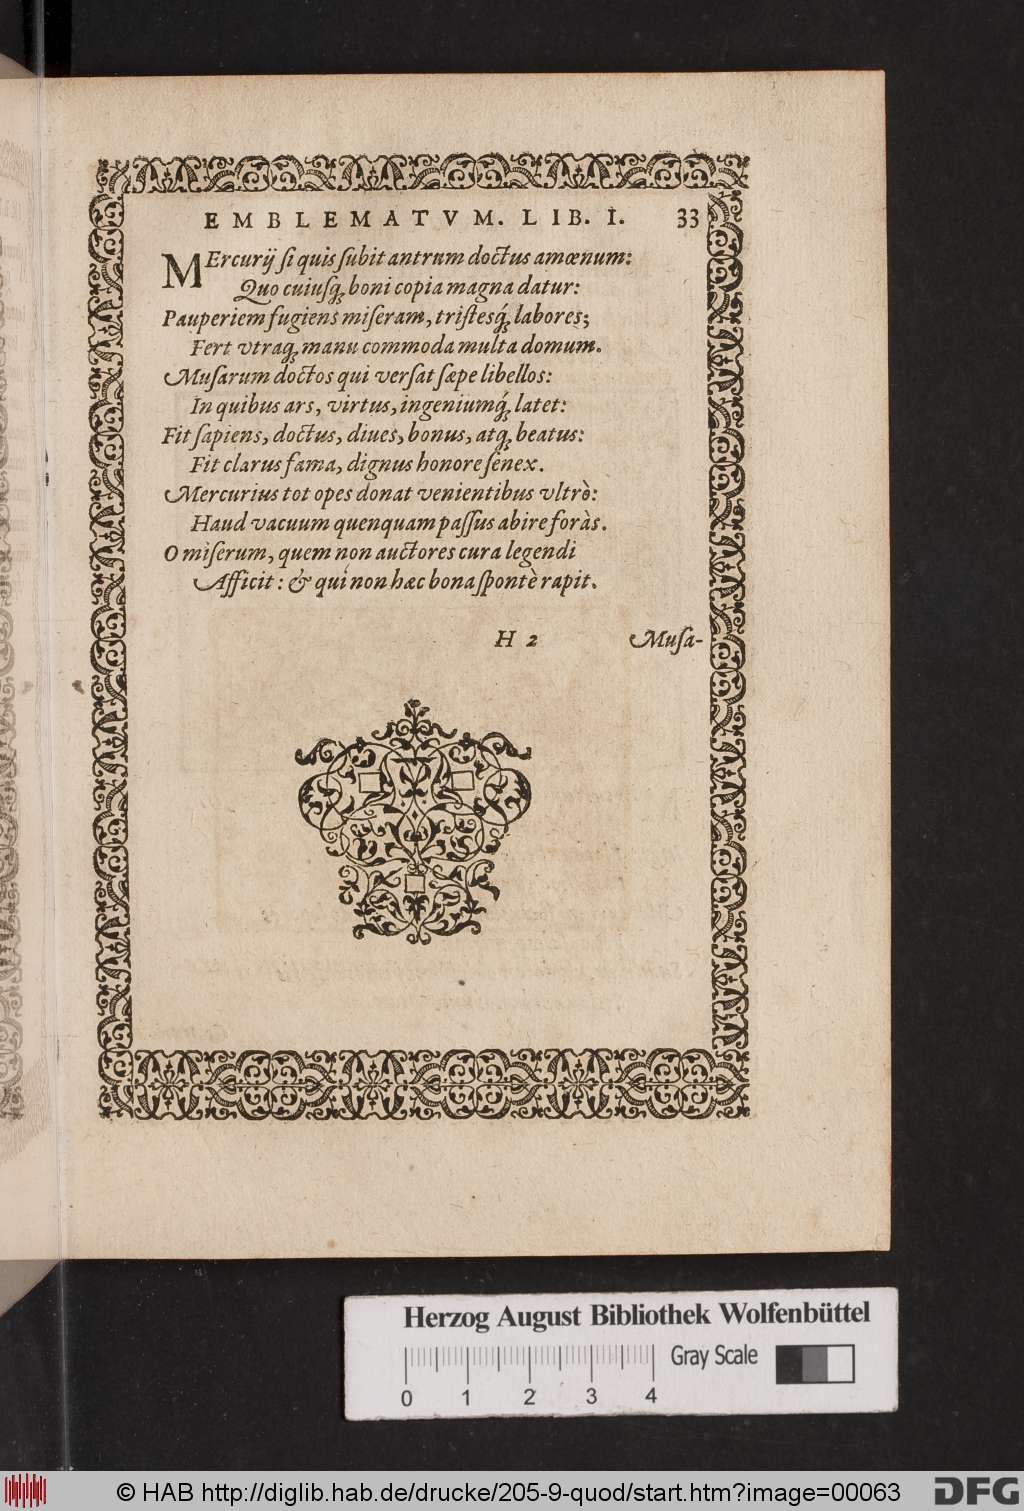 EMBLEMATVM. LIB. I. 33
MErcurij si quis subit antrum doctus amœnum:
Quo cuiusq; boni copia magna datur:
Pauperiem fugiens miseram, tristesq́; labores;
Fert vtraq; manu commoda multa domum.
Musarum doctos qui versat sæpe libellos:
In quibus ars, virtus, ingeniumq́; latet:
Fit sapiens, doctus, diues, bonus, atq; beatus:
Fit clarus fama, dignus honore senex.
Mercurius tot opes donat venientibus vltrò:
Haud vacuum quenquam passus abire foràs.
O miserum, quem non auctores cura legendi
Afficit: & qui non hæc bona spontè rapit.
H 2 Musa-
Herzog August Bibliothek Wolfenbüttel
Gray Scale
0 1 2 3 4
© HAB http://diglib.hab.de/drucke/205-9-quod/start.htm?image=00063
DFG